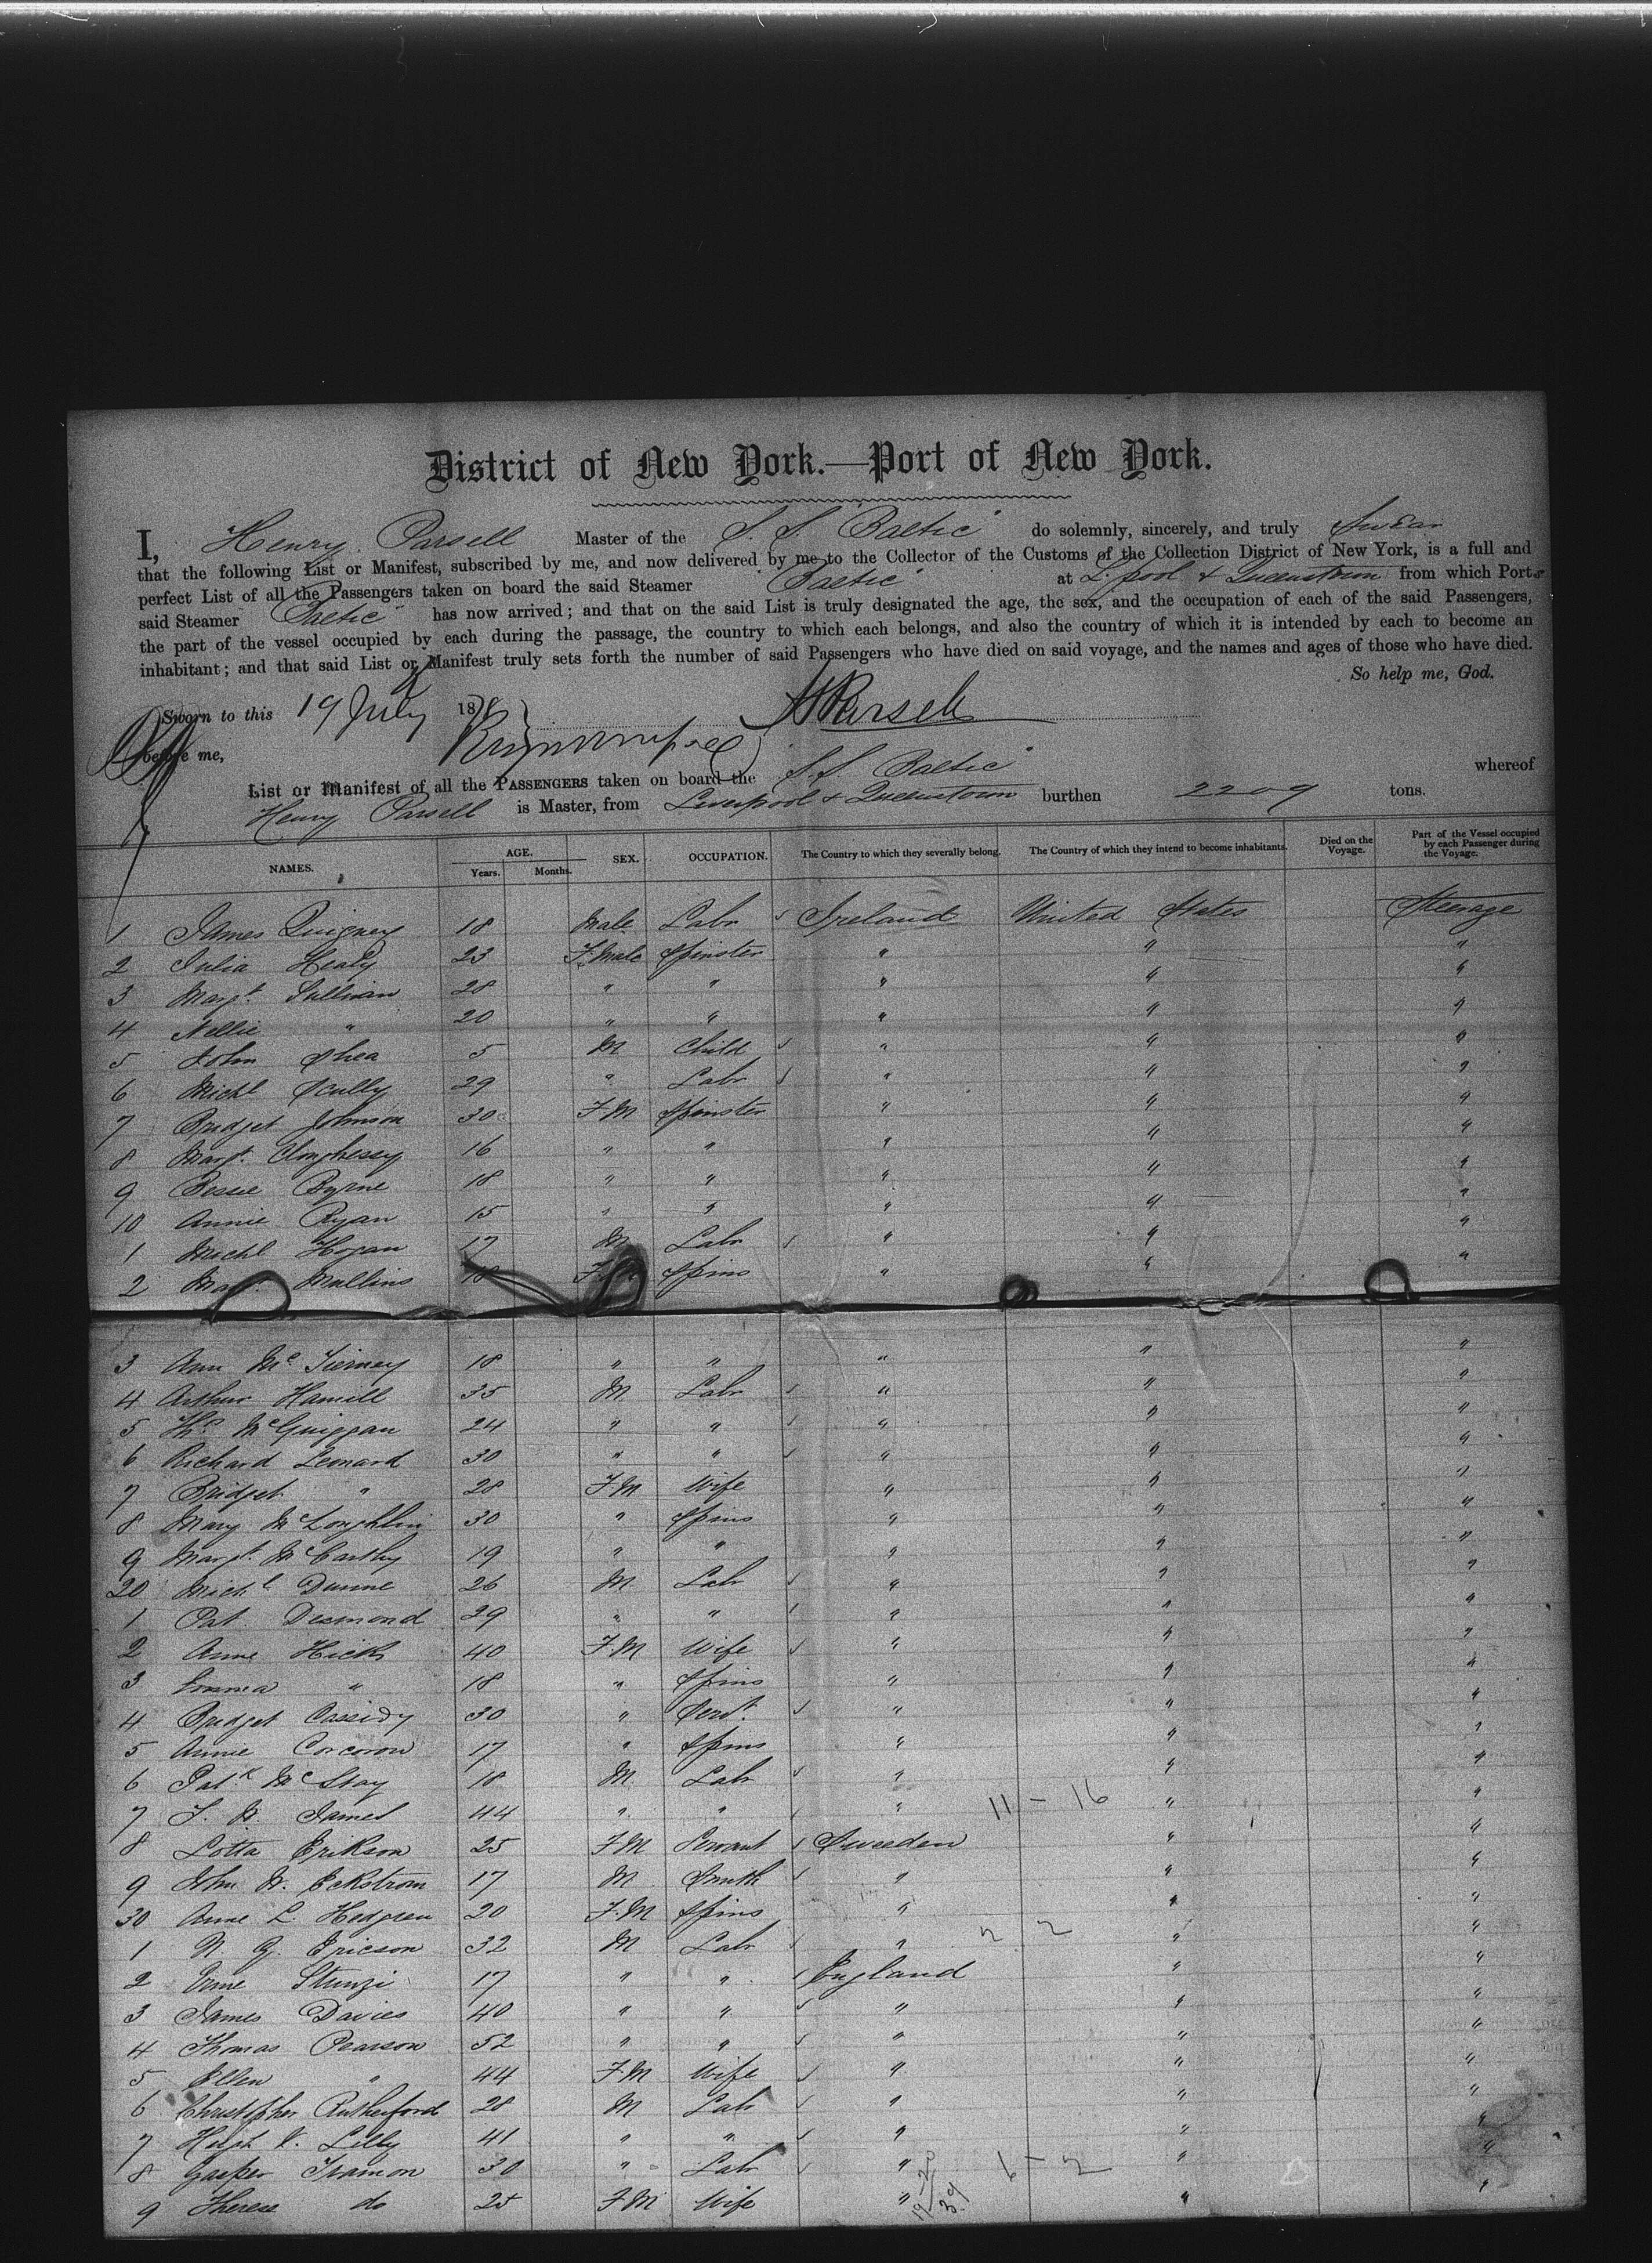 District of New York.—Port of New York.
I, Henry Parsell Master of the S. S. "Baltic" do solemnly, sincerely, and truly Swear
that the following List or Manifest, subscribed by me, and now delivered by me to the Collector of the Customs of the Collection District of New York, is a full and
perfect List of all the Passengers taken on board the said Steamer "Baltic" at L.pool & Queenstown from which Port
said Steamer "Baltic" has now arrived; and that on the said List is truly designated the age, the sex, and the occupation of each of the said Passengers,
the part of the vessel occupied by each during the passage, the country to which each belongs, and also the country of which it is intended by each to become an
inhabitant; and that said List or Manifest truly sets forth the number of said Passengers who have died on said voyage, and the names and ages of those who have died.
So help me, God.
Sworn to this 19 July 187 HParsell
before me,
List or Manifest of all the PASSENGERS taken on board the S.S "Baltic" whereof
Henry Parsell is Master, from Liverpool & Queenstown burthen 2209 tons.
NAMES. AGE. Years. Months. SEX. OCCUPATION. The Country to which they severally belong. The Country of which they intend to become inhabitants. Died on the Voyage. Part of the Vessel occupied by each Passenger during the Voyage.
1 James Quigney 18 Male Labr Ireland United States Steerage
2 Julia Healy 23 F.Male Spinster " " "
3 Margt. Sullivan 28 " " " " "
4 Nellie " 20 " " " " "
5 John Shea 5 M Child " " "
6 Michl Scully 29 " Labr " " "
7 Bridget Johnson 30 F.M Spinster " " "
8 Margt. Cloghessy 16 " " " " "
9 Bessie Byrne 18 " " " " "
10 Annie Ryan 15 " " " " "
1 Michl Hogan 17 M Labr " " "
2 Mullins 18 F.M Spins " " "
3 Ann Mc Tierney 18 " " " " "
4 Arthur Hamill 35 M Labr " " "
5 Ths. McGuiggan 24 " " " " "
6 Richard Leonard 30 " " " " "
7 Bridget " 28 F.M Wife " " "
8 Mary McLoughlin 30 " Spins " " "
9 Margt. McCarthy 19 " " " " "
20 Michl Dunne 26 M Labr " " "
1 Pat Desmond 29 " " " " "
2 Anne Hick 40 F.M Wife " " "
3 Emma " 18 " Spins " " "
4 Bridget Cassidy 30 " Servt. " " "
5 Annie Corcoron 17 " Spins " " "
6 Patk McStay 18 M Labr " " "
7 J. W. James 44 " " " 11 - 16 " "
8 Lotta Erikson 25 F.M Servant Sweeden " "
9 John W. Eckstrom 17 M Smith " " "
30 Anne L. Hedgren 20 F.M Spins " " "
1 N. G. Ericson 32 M Labr " 2 2 " "
2 Stunzi 17 " " England " "
3 James Davies 40 " " " " "
4 Thomas Pearson 52 " " " " "
5 Ellen " 44 F.M Wife " " "
6 Christopher Rutherford 28 M Labr " " "
7 Hugh V. Lilly 41 " " " " "
8 Gasper Tramon 30 " Labr " 6 - 2 " "
9 Therese do 25 F.M Wife " " "
19 20
39